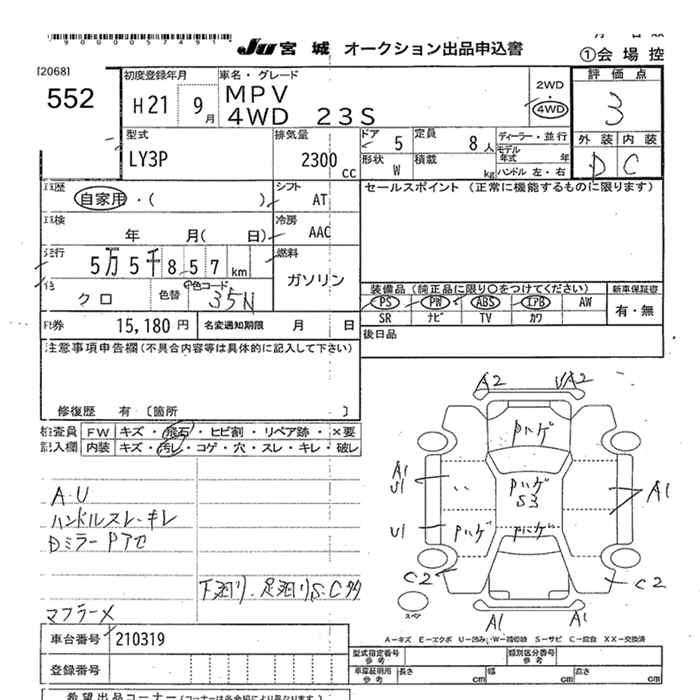 90000057491
JU 宮城 オークション出品申込書
①会場控
[2068]
552
初度登録年月
H21 9月
車名・グレード
MPV
4WD 23S
2WD
・
4WD
評価点
3
外装 内装
D C
型式
LY3P
排気量
2300 cc
ドア 5
定員 8人
ディーラー・並行
形状 W
積載 kg
モデル年式 年
ハンドル 左・右
車歴
自家用・( )
シフト
AT
セールスポイント (正常に機能するものに限ります)
車検
年 月( 日)
冷房
AAC
走行
5万5千857km
燃料
ガソリン
色
クロ
色替
色コード
35N
装備品 (純正品に限り○をつけてください)
新車保証書
PS PW ABS エアB AW
有・無
SR ナビ TV カワ
R券 15,180円
名変通知期限 月 日
後日品
注意事項申告欄(不具合内容等は具体的に記入して下さい)
修復歴 有 〔箇所 〕
検査員記入欄
FW キズ・飛石・ヒビ割・リペア跡・×要
内装 キズ・汚レ・コゲ・穴・スレ・キレ・破レ
A.U
ハンドルスレ・キレ
Dミラー Pアセ
下廻り、足廻りS.C多
マフラーメ
A2
A2
Pハゲ
A1
U1
Pハゲ
S3
A1
U1
Pハゲ
Pハゲ
C2
C2
スペア
A1
A1
A-キズ E-エクボ U-凹み W-補修跡 S-サビ C-腐食 XX-交換済
車台番号 210319
型式指定番号 参考
類別区分番号 参考
登録番号
車庫証明用 参考
長さ cm
幅 cm
高さ cm
希望出品コーナー